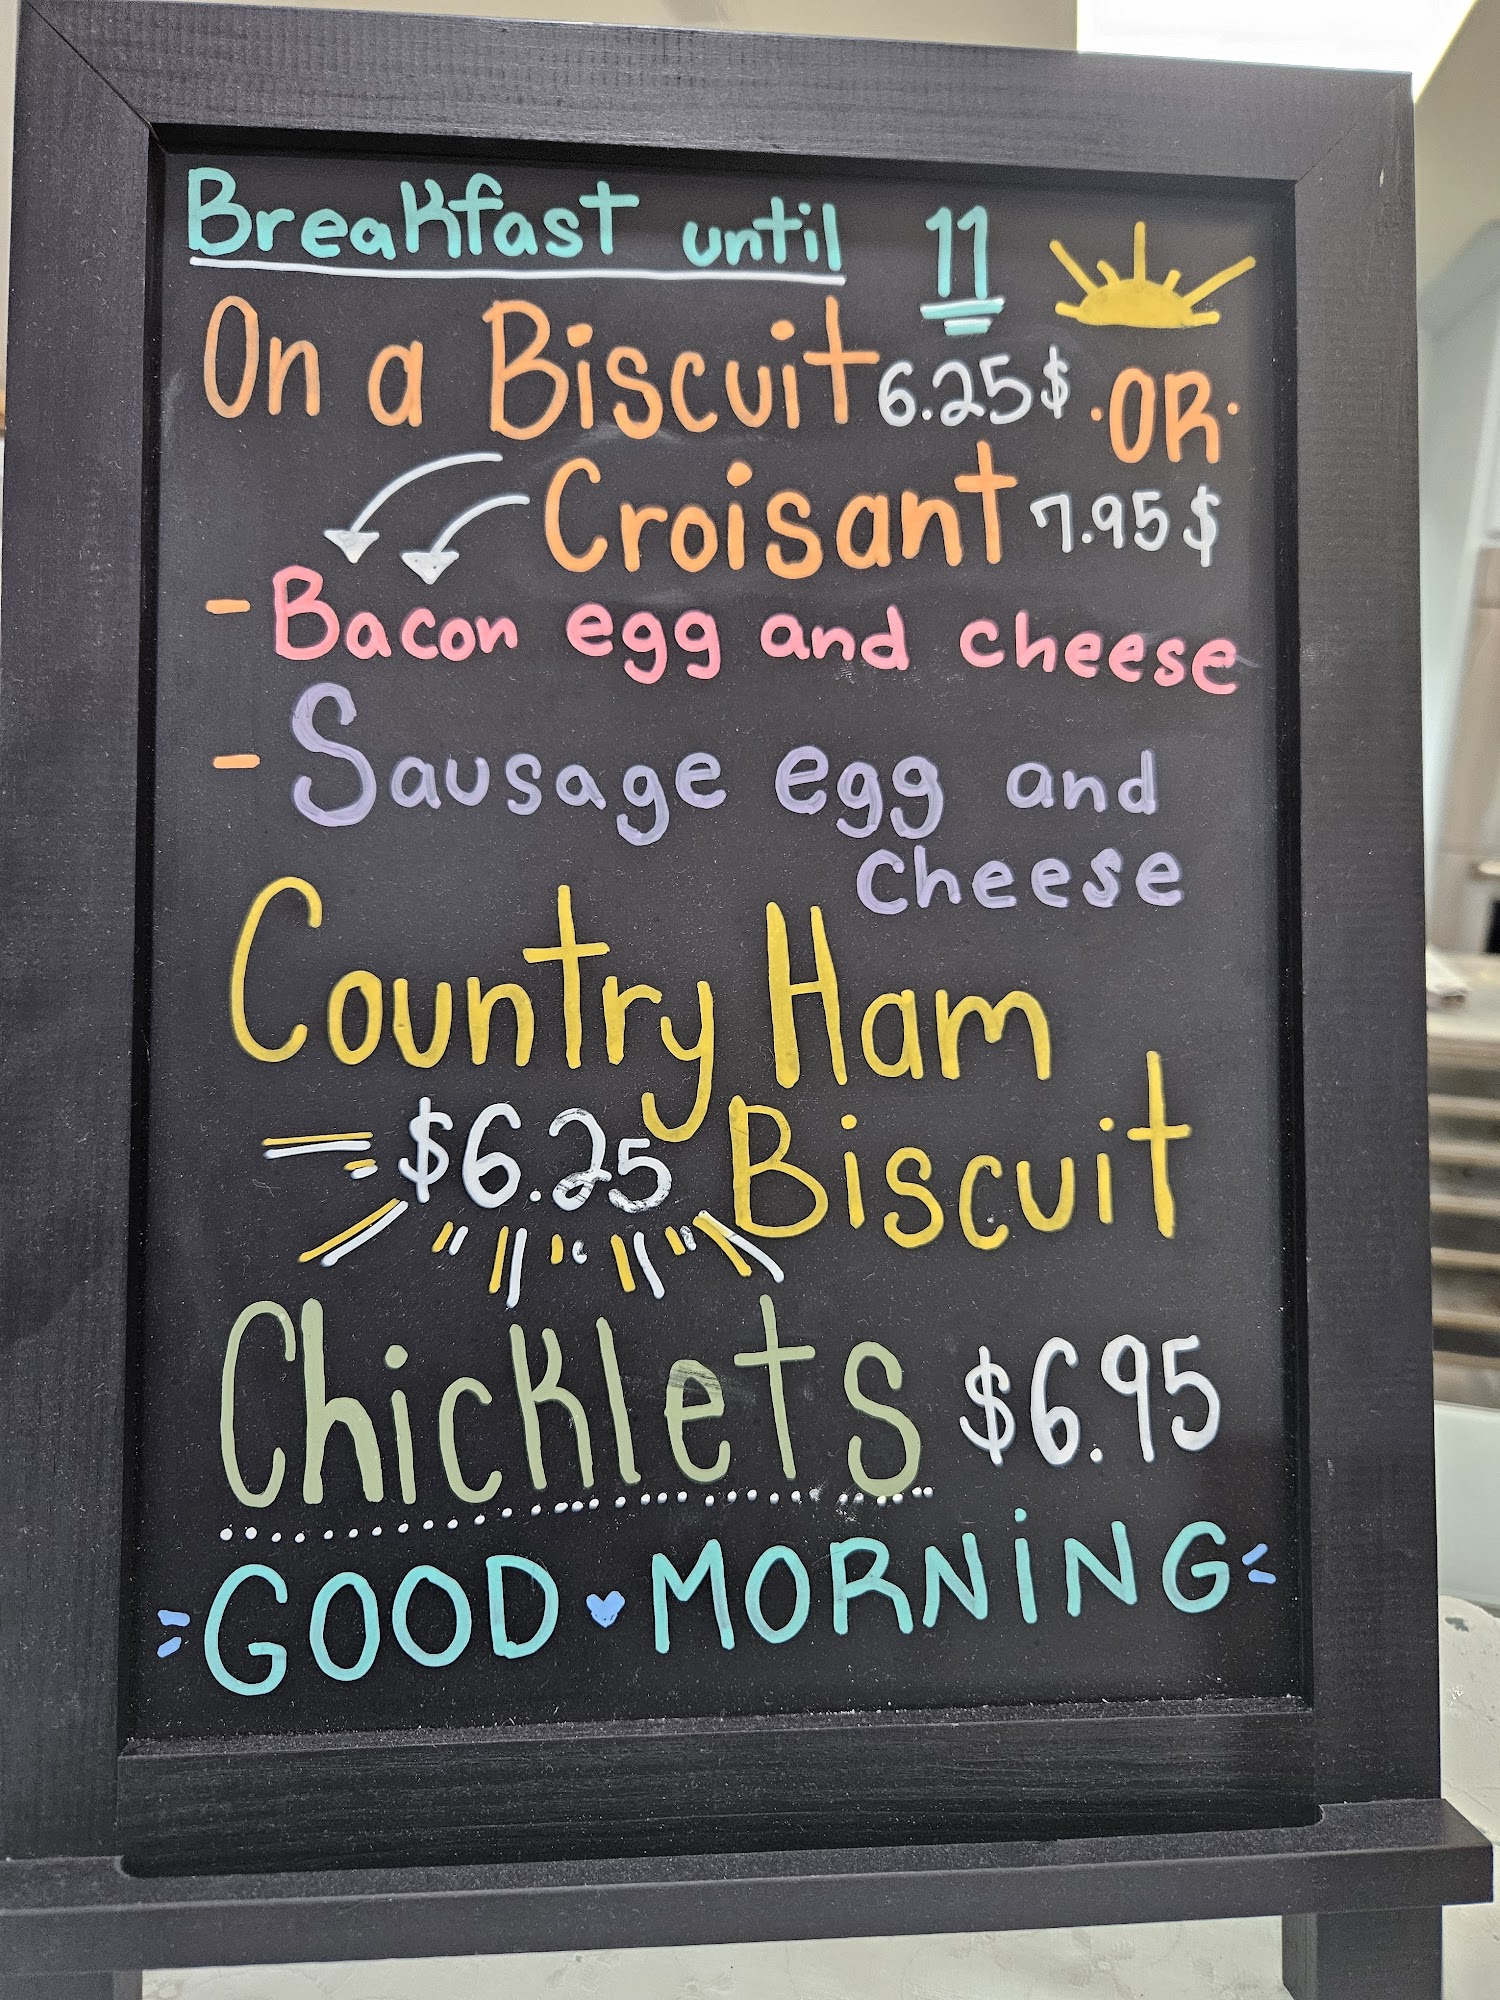 Breakfast until 11
On a Biscuit 6.25$ ·OR·
Croisant 7.95$
- Bacon egg and cheese
- Sausage egg and
cheese
Country Ham
$6.25 Biscuit
Chicklets $6.95
GOOD MORNING